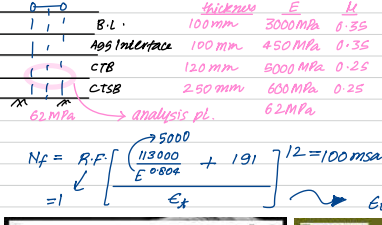 thickness E μ
B.L. 100mm 3000MPa 0.35
Agg Interface 100mm 450MPa 0.35
CTB 120mm 5000MPa 0.25
CTSB 250mm 600MPa 0.25
62MPa analysis pt. 62MPa
5000
Nf = R.F. [ 113000 / E^0.804 + 191 / ϵt ] 12 = 100msa
=1